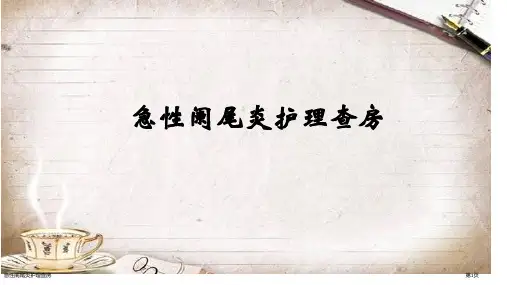 急性阑尾炎护理查房
急性阑尾炎护理查房
第1页